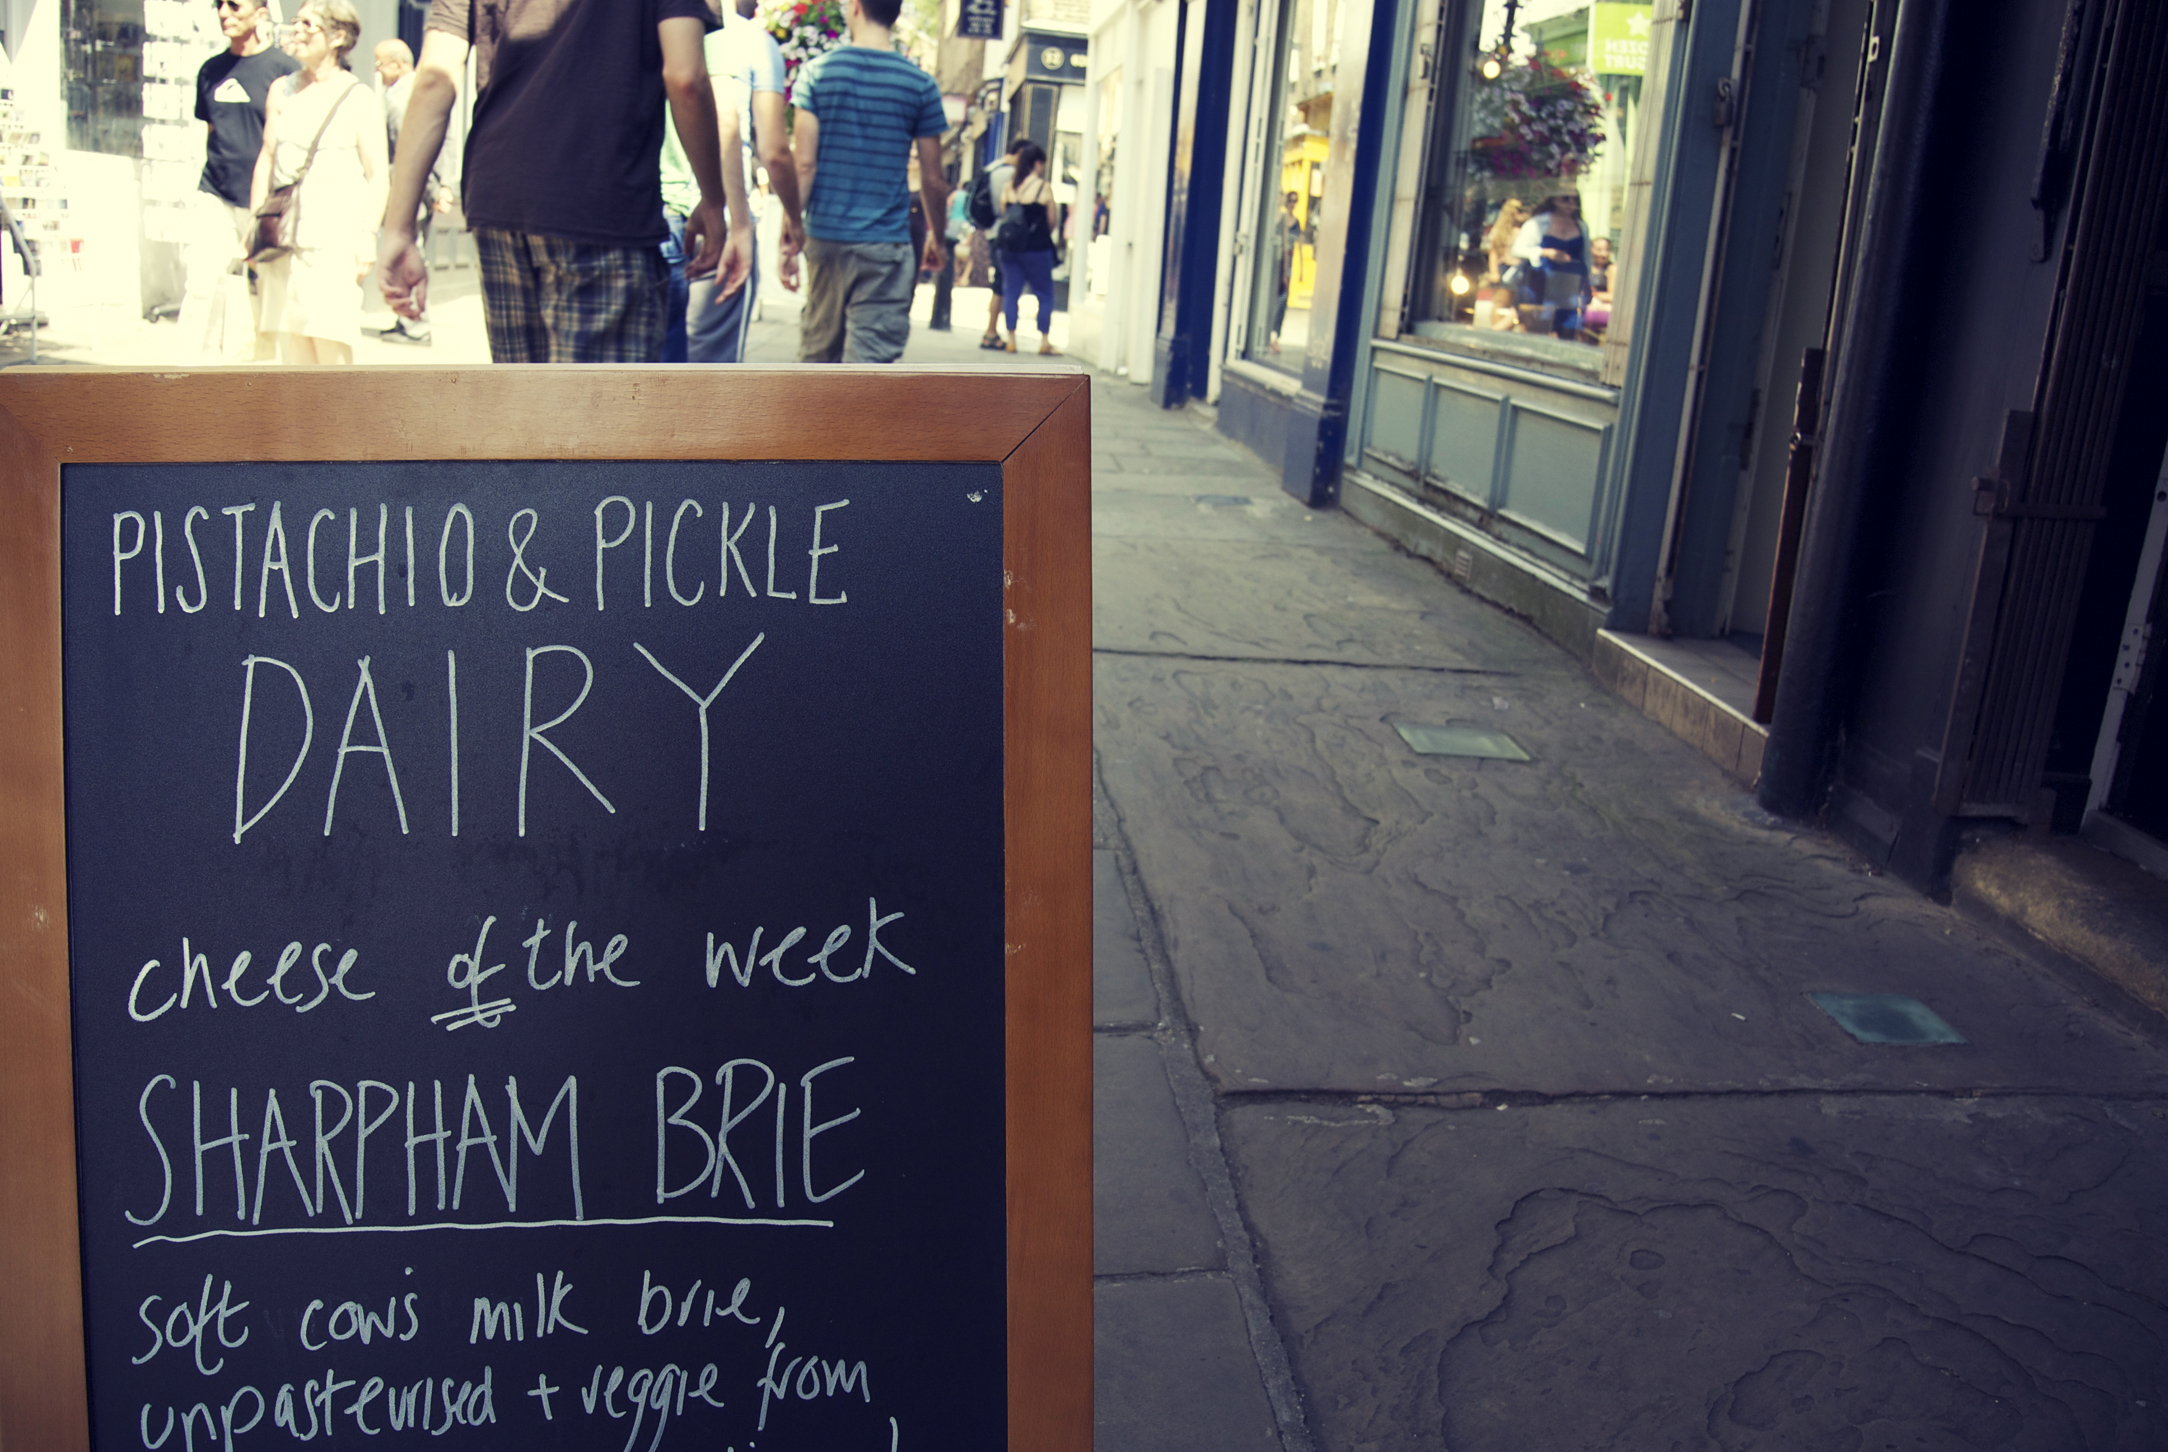 PISTACHIO & PICKLE
DAIRY
cheese of the week
SHARPHAM BRIE
soft cows milk brie,
unpasteurised + veggie from